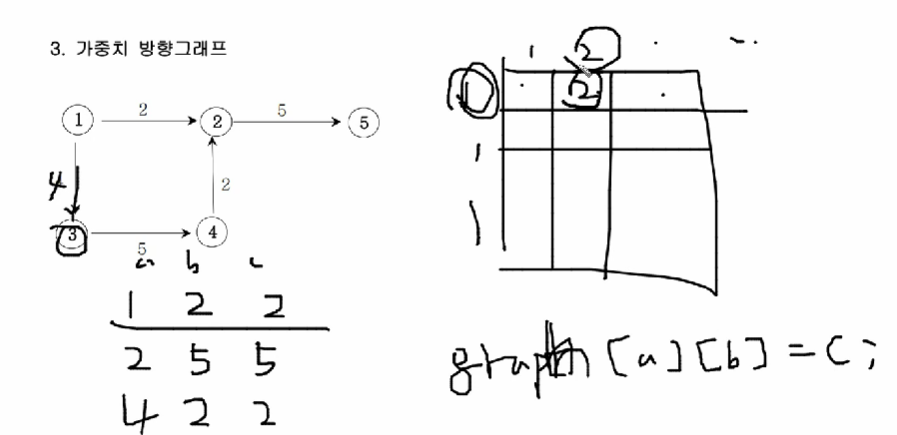 3. 가중치 방향그래프
1 2 2 5 5
4 2
3 5 4
a b c
1 2 2
2 5 5
4 2 2
1 2
1 2
graph[a][b] = c;